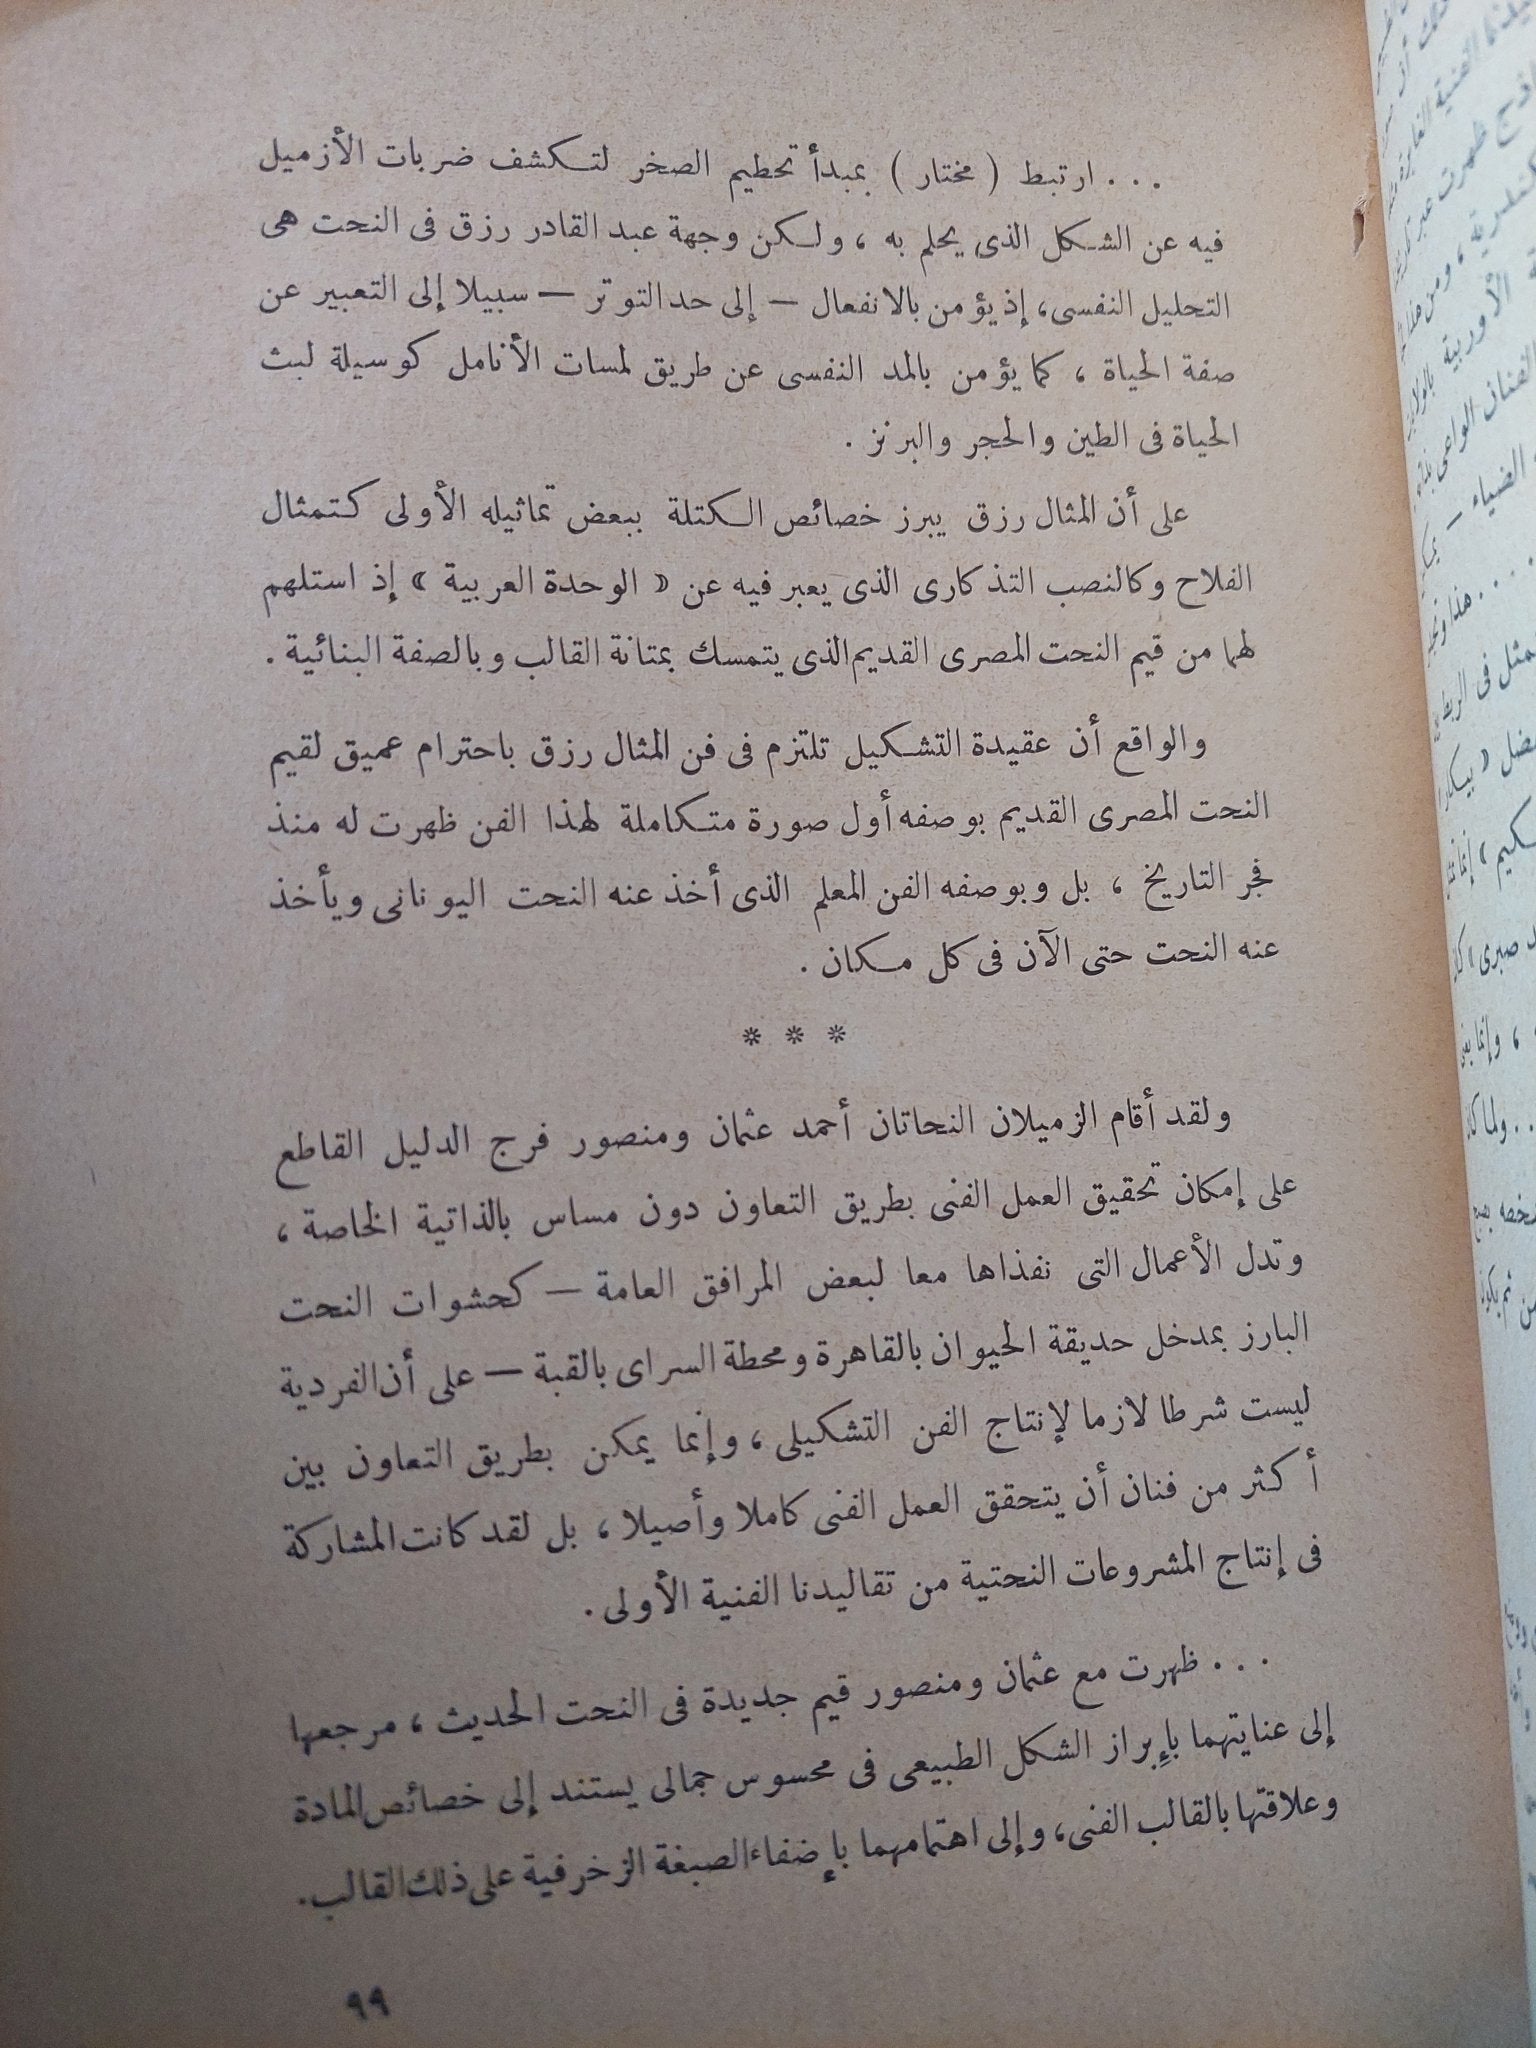 ... ارتبط ( مختار ) بمبدأ تحطيم الصخر لتكشف ضربات الأزميل
فيه عن الشكل الذى يحلم به ، ولكن وجهة عبد القادر رزق فى النحت هى
التحليل النفسى ، إذ يؤمن بالانفعال — إلى حد التوتر — سبيلا إلى التعبير عن
صفة الحياة ، كما يؤمن بالمد النفسى عن طريق لمسات الأنامل كوسيلة لبث
الحياة فى الطين والحجر والبرنز .
على أن المثال رزق يبرز خصائص الكتلة ببعض تماثيله الأولى كتمثال
الفلاح وكالنصب التذكارى الذى يعبر فيه عن « الوحدة العربية » إذ استلهم
لهما من قيم النحت المصرى القديم الذى يتمسك بمتانة القالب وبالصفة البنائية .
والواقع أن عقيدة التشكيل تلتزم فى فن المثال رزق باحترام عميق لقيم
النحت المصرى القديم بوصفه أول صورة متكاملة لهذا الفن ظهرت له منذ
فجر التاريخ ، بل وبوصفه الفن المعلم الذى أخذ عنه النحت اليونانى ويأخذ
عنه النحت حتى الآن فى كل مكان .
* * *
ولقد أقام الزميلان النحاتان أحمد عثمان ومنصور فرج الدليل القاطع
على إمكان تحقيق العمل الفنى بطريق التعاون دون مساس بالذاتية الخاصة ،
وتدل الأعمال التى نفذاها معا لبعض المرافق العامة — كحشوات النحت
البارز بمدخل حديقة الحيوان بالقاهرة ومحطة السراى بالقبة — على أن الفردية
ليست شرطا لازما لإنتاج الفن التشكيلى ، وإنما يمكن بطريق التعاون بين
أكثر من فنان أن يتحقق العمل الفنى كاملا وأصيلا ، بل لقد كانت المشاركة
فى إنتاج المشروعات النحتية من تقاليدنا الفنية الأولى .
... ظهرت مع عثمان ومنصور قيم جديدة فى النحت الحديث ، مرجعها
إلى عنايتهما بإبراز الشكل الطبيعى فى محسوس جمالى يستند إلى خصائص المادة
وعلاقتها بالقالب الفنى ، وإلى اهتمامهما بإضفاء الصبغة الزخرفية على ذلك القالب .
٩٩